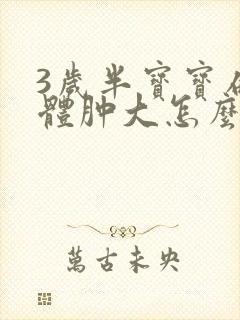 3歲半寶寶
體肿大怎麼
萬古未央